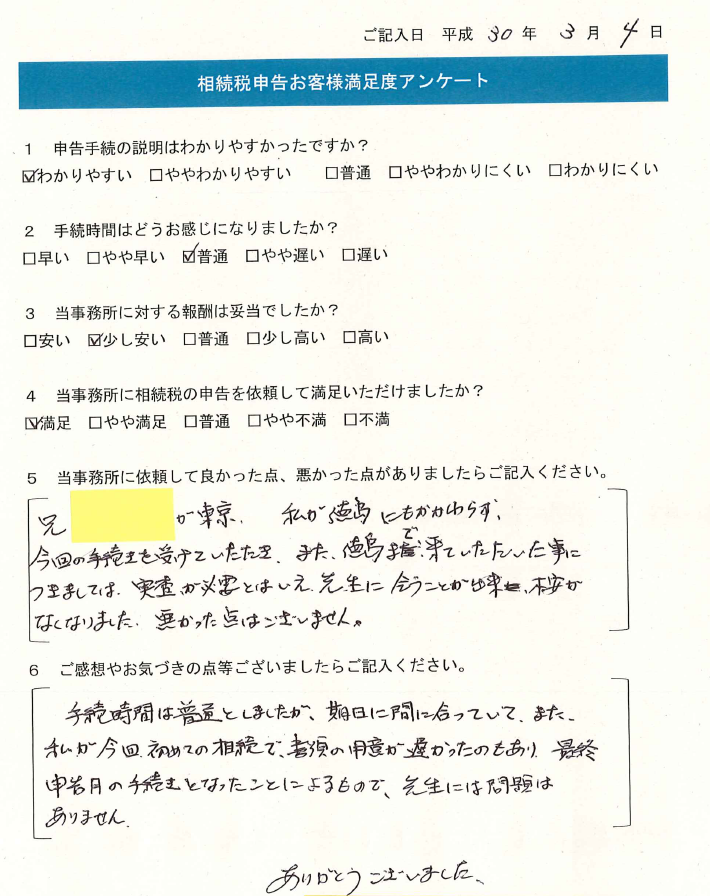 ご記入日 平成 30 年 3 月 4 日
相続税申告お客様満足度アンケート
1 申告手続の説明はわかりやすかったですか？
☑わかりやすい □ややわかりやすい □普通 □ややわかりにくい □わかりにくい
2 手続時間はどうお感じになりましたか？
□早い □やや早い ☑普通 □やや遅い □遅い
3 当事務所に対する報酬は妥当でしたか？
□安い ☑少し安い □普通 □少し高い □高い
4 当事務所に相続税の申告を依頼して満足いただけましたか？
☑満足 □やや満足 □普通 □やや不満 □不満
5 当事務所に依頼して良かった点、悪かった点がありましたらご記入ください。
兄 が東京、私が徳島にもかかわらず、
今回の手続きを受けていただき、また、徳島まで来ていただいた事に
つきましては、実査が必要とはいえ、先生に会うことが出来、不安が
なくなりました。悪かった点はございません。
6 ご感想やお気づきの点等ございましたらご記入ください。
手続時間は普通としましたが、期日に間に合っていて、また、
私が今回初めての相続で、書類の用意が遅かったのもあり、最終
申告月の手続きとなったことによるもので、先生には問題は
ありません。
ありがとうございました。